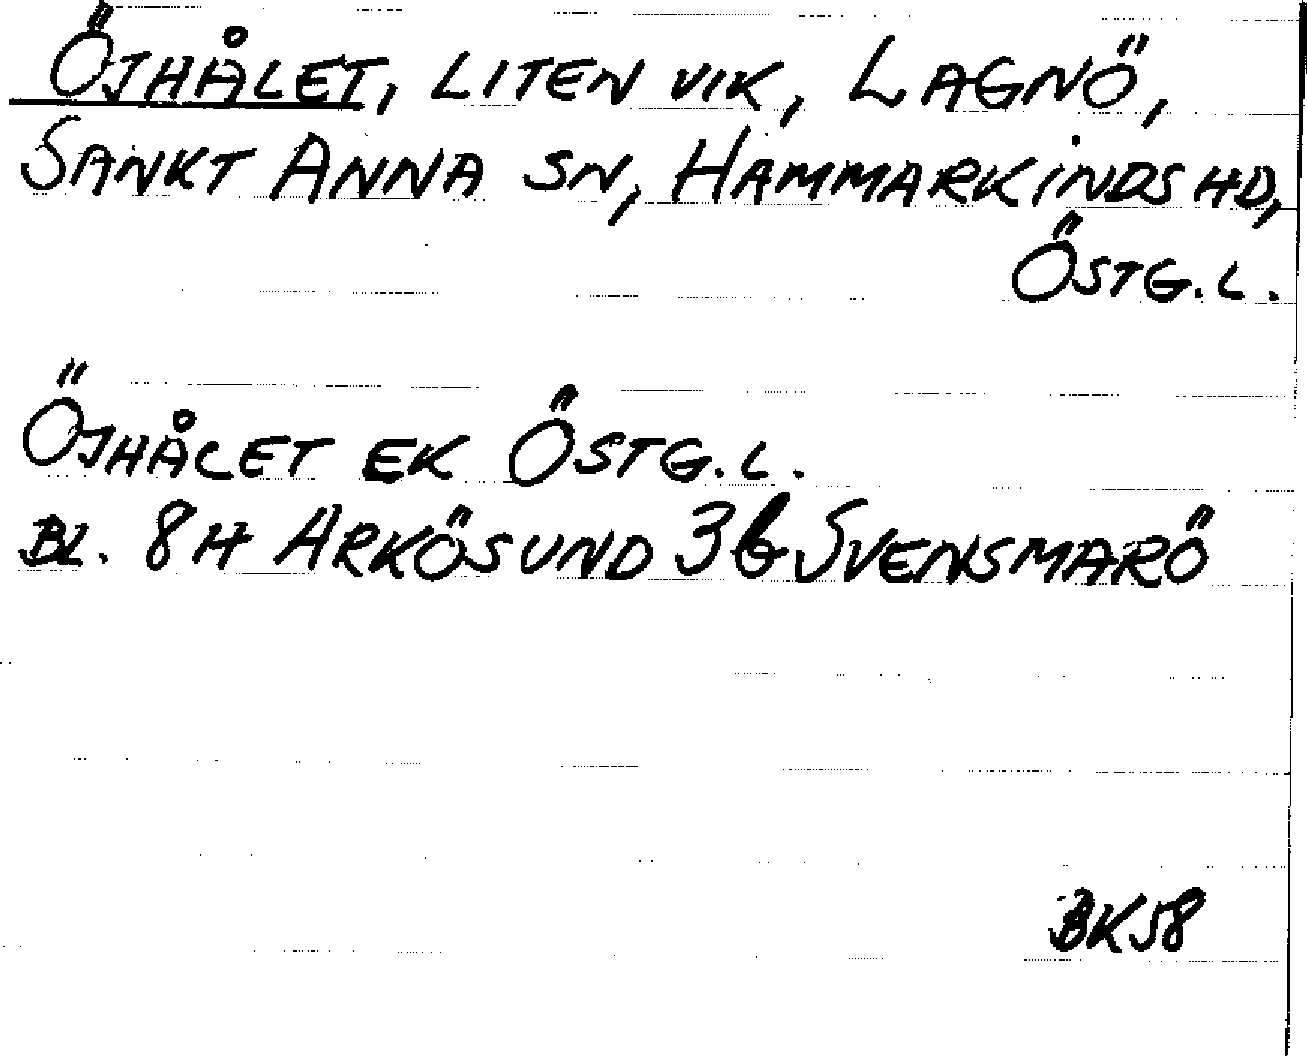 ÖJHÅLET, LITEN VIK, LAGNÖ,
SANKT ANNA SN, HAMMARKINDS HD,
ÖSTG.L.
ÖJHÅLET EK ÖSTG.L.
BL. 8H ARKÖSUND 3b SVENSMARÖ
BK58